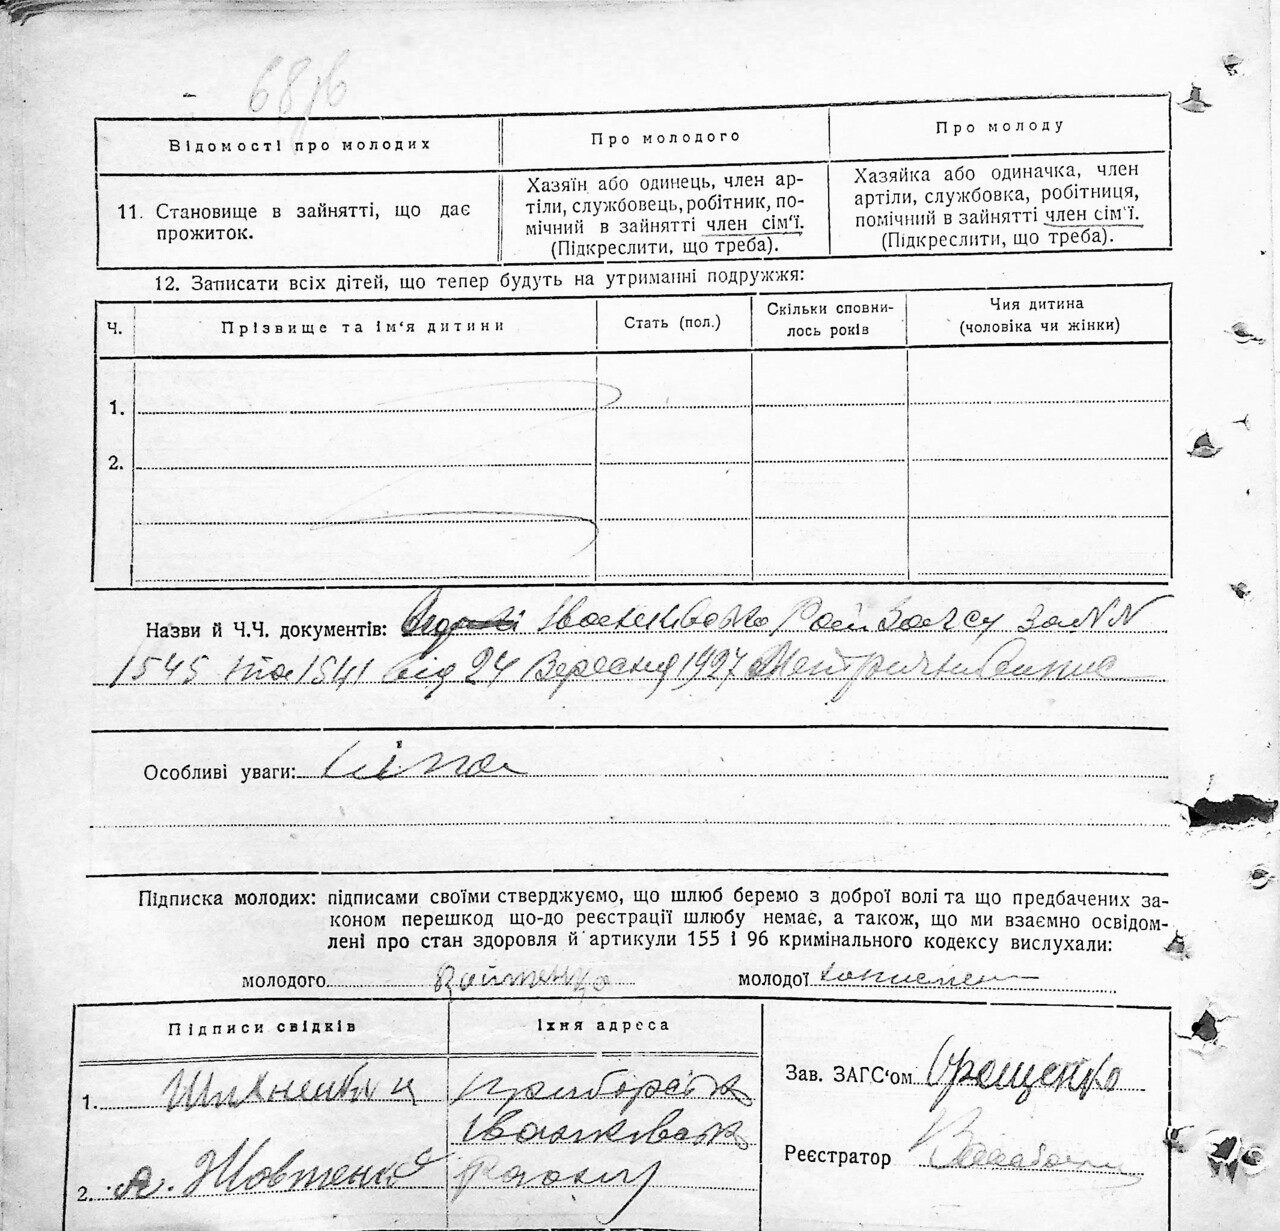 68зв
Відомості про молодих
Про молодого
Про молоду
11. Становище в зайнятті, що дає
прожиток.
Хазяїн або одинець, член ар-
тіли, службовець, робітник, по-
мічний в зайнятті член сім'ї.
(Підкреслити, що треба).
Хазяйка або одиначка, член
артіли, службовка, робітниця,
помічний в зайнятті член сім'ї.
(Підкреслити, що треба).
12. Записати всіх дітей, що тепер будуть на утриманні подружжя:
Ч.
Прізвище та ім'я дитини
Стать (пол.)
Скільки сповни-
лось років
Чия дитина
(чоловіка чи жінки)
1.
2.
Назви й Ч.Ч. документів: Іванківсько Рай Загсу за NN
1545 та 1541 від 24 Вересня 1927
Особливі уваги:
Підписка молодих: підписами своїми стверджуємо, що шлюб беремо з доброї волі та що предбачених за-
коном перешкод що-до реєстрації шлюбу немає, а також, що ми взаємно освідом-
лені про стан здоровля й артикули 155 і 96 кримінального кодексу вислухали:
молодого
молодої
Підписи свідків
Їхня адреса
1.
Іванківськ
2. А. Жовтенко
Району
Зав. ЗАГС'ом
Реєстратор